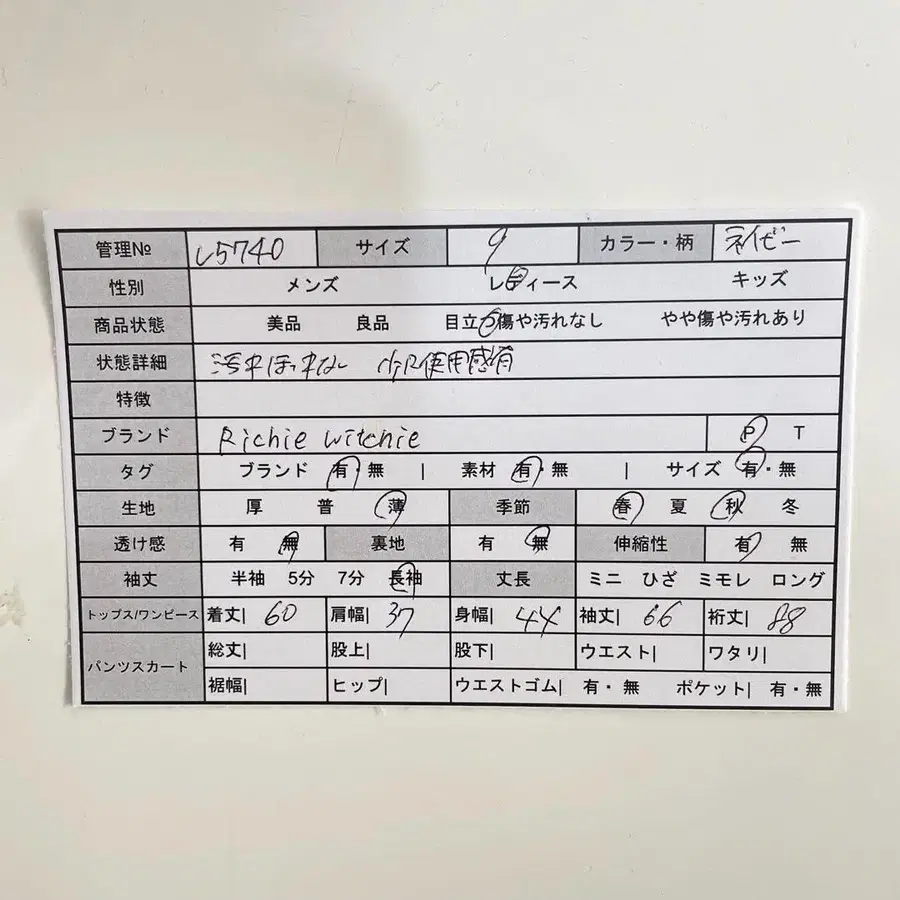 管理No L5740 サイズ 9 カラー・柄 ネイビー
性別 メンズ レディース キッズ
商品状態 美品 良品 目立つ傷や汚れなし やや傷や汚れあり
状態詳細 汚れほつれなし 少し使用感有
特徴
ブランド Richie witchie P T
タグ ブランド 有・無 | 素材 有・無 | サイズ 有・無
生地 厚 普 薄 季節 春 夏 秋 冬
透け感 有 無 裏地 有 無 伸縮性 有 無
袖丈 半袖 5分 7分 長袖 丈長 ミニ ひざ ミモレ ロング
トップス/ワンピース 着丈| 60 肩幅| 37 身幅| 44 袖丈| 66 裄丈| 88
パンツスカート 総丈| 股上| 股下| ウエスト| ワタリ|
裾幅| ヒップ| ウエストゴム| 有・無 ポケット| 有・無